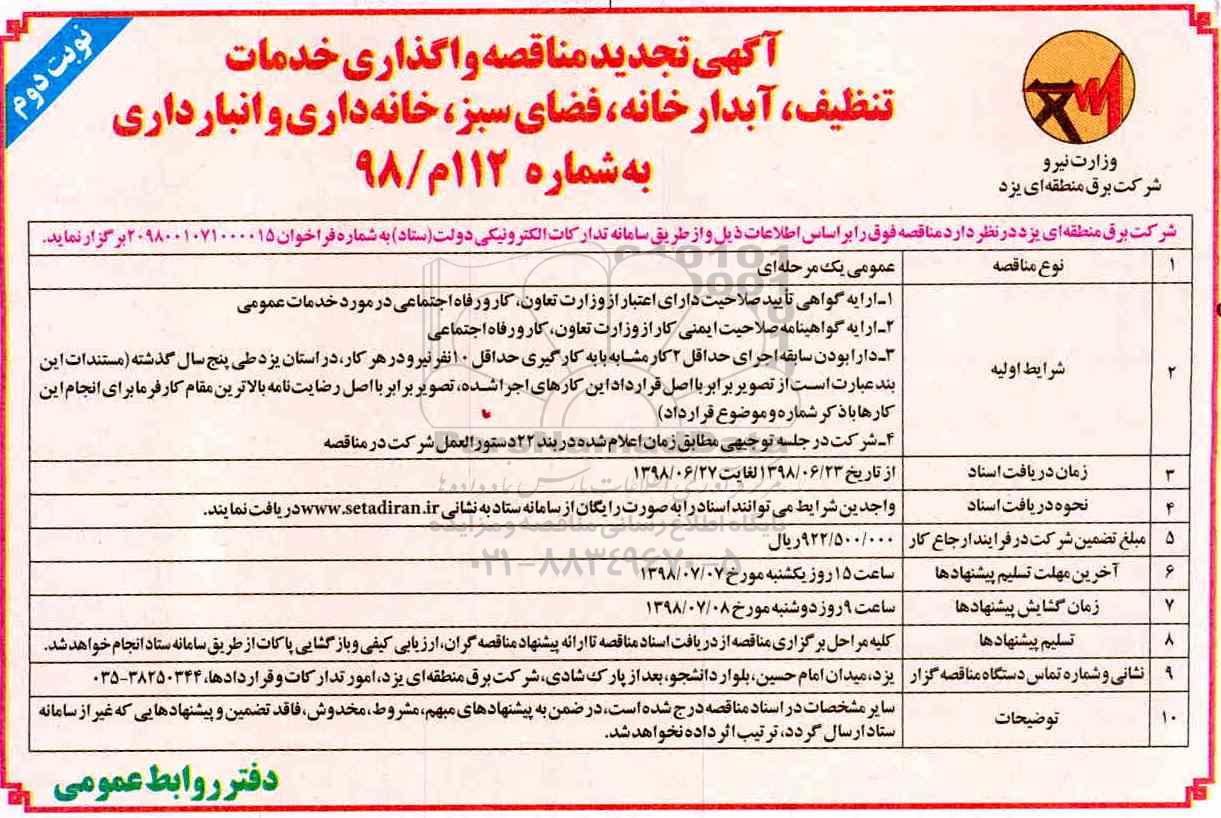 نوبت دوم
وزارت نیرو
شرکت برق منطقه‌ای یزد
آگهی تجدید مناقصه واگذاری خدمات
تنظیف، آبدارخانه، فضای سبز، خانه‌داری و انبارداری
به شماره ۱۱۲م/۹۸
شرکت برق منطقه‌ای یزد در نظر دارد مناقصه فوق را بر اساس اطلاعات ذیل و از طریق سامانه تدارکات الکترونیکی دولت (ستاد) به شماره فراخوان ۲۰۹۸۰۰۱۰۷۱۰۰۰۰۱۵ برگزار نماید.
۱ نوع مناقصه عمومی یک مرحله‌ای
۲ شرایط اولیه
۱ـ ارایه گواهی تأیید صلاحیت دارای اعتبار از وزارت تعاون، کار و رفاه اجتماعی در مورد خدمات عمومی
۲ـ ارایه گواهینامه صلاحیت ایمنی کار از وزارت تعاون، کار و رفاه اجتماعی
۳ـ دارا بودن سابقه اجرای حداقل ۲ کار مشابه با به کارگیری حداقل ۱۰ نفر نیرو در هر کار، در استان یزد طی پنج سال گذشته (مستندات این
بند عبارت است از تصویر برابر با اصل قرارداد این کارهای اجرا شده، تصویر برابر با اصل رضایت‌نامه بالاترین مقام کارفرما برای انجام این
کارها با ذکر شماره و موضوع قرارداد)
۴ـ شرکت در جلسه توجیهی مطابق زمان اعلام شده در بند ۲۲ دستورالعمل شرکت در مناقصه
۳ زمان دریافت اسناد از تاریخ ۱۳۹۸/۰۶/۲۳ لغایت ۱۳۹۸/۰۶/۲۷
۴ نحوه دریافت اسناد واجدین شرایط می‌توانند اسناد را به صورت رایگان از سامانه ستاد به نشانی www.setadiran.ir دریافت نمایند.
۵ مبلغ تضمین شرکت در فرایند ارجاع کار ۹۲۲/۵۰۰/۰۰۰ ریال
۶ آخرین مهلت تسلیم پیشنهادها ساعت ۱۵ روز یکشنبه مورخ ۱۳۹۸/۰۷/۰۷
۷ زمان گشایش پیشنهادها ساعت ۹ روز دوشنبه مورخ ۱۳۹۸/۰۷/۰۸
۸ تسلیم پیشنهادها کلیه مراحل برگزاری مناقصه از دریافت اسناد مناقصه تا ارائه پیشنهاد مناقصه گران، ارزیابی کیفی و بازگشایی پاکات از طریق سامانه ستاد انجام خواهد شد.
۹ نشانی و شماره تماس دستگاه مناقصه گزار یزد، میدان امام حسین، بلوار دانشجو، بعد از پارک شادی، شرکت برق منطقه‌ای یزد، امور تدارکات و قراردادها، ۳۸۲۵۰۳۴۴-۰۳۵
۱۰ توضیحات سایر مشخصات در اسناد مناقصه درج شده است، در ضمن به پیشنهادهای مبهم، مشروط، مخدوش، فاقد تضمین و پیشنهادهایی که غیر از سامانه
ستاد ارسال گردد، ترتیب اثر داده نخواهد شد.
دفتر روابط عمومی
ParsNamadData
پایگاه اطلاع رسانی مناقصه و مزایده
۰۲۱-۸۸۳۴۹۶۷۰-۵